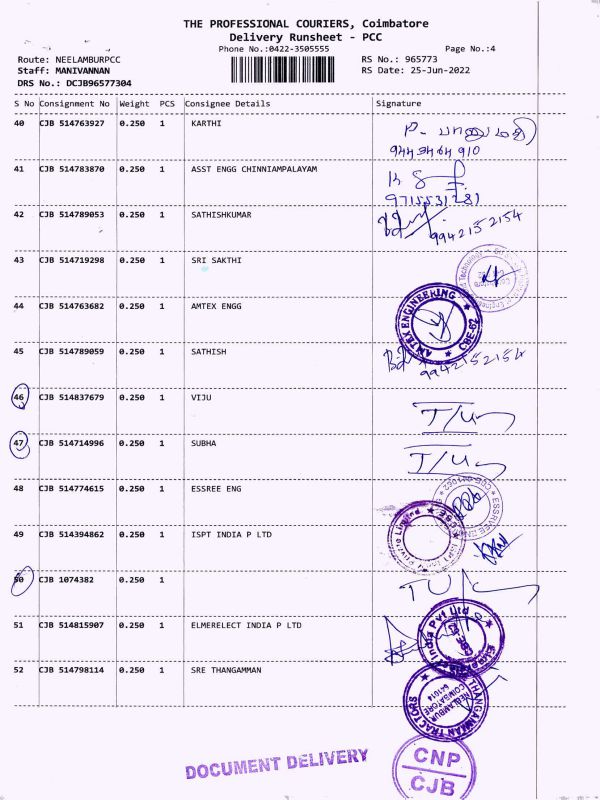 THE PROFESSIONAL COURIERS, Coimbatore
Delivery Runsheet - PCC
Phone No.:0422-3505555 Page No.:4
Route: NEELAMBURPCC RS No.: 965773
Staff: MANIVANNAN RS Date: 25-Jun-2022
DRS No.: DCJB96577304
S No Consignment No Weight PCS Consignee Details Signature
40 CJB 514763927 0.250 1 KARTHI
41 CJB 514783870 0.250 1 ASST ENGG CHINNIAMPALAYAM
9715531281
42 CJB 514789053 0.250 1 SATHISHKUMAR
9942152154
43 CJB 514719298 0.250 1 SRI SAKTHI
44 CJB 514763682 0.250 1 AMTEX ENGG
AMTEX ENGINEERING ★ CBE-62 ★
45 CJB 514789059 0.250 1 SATHISH
9942152154
46 CJB 514837679 0.250 1 VIJU
47 CJB 514714996 0.250 1 SUBHA
48 CJB 514774615 0.250 1 ESSREE ENG
49 CJB 514394862 0.250 1 ISPT INDIA P LTD
50 CJB 1074382 0.250 1
51 CJB 514815907 0.250 1 ELMERELECT INDIA P LTD
India Pvt Ltd
52 CJB 514798114 0.250 1 SRE THANGAMMAN
THANGAMMAN TRACTORS
NEELAMBUR
COIMBATORE
641014
DOCUMENT DELIVERY
CNP
CJB